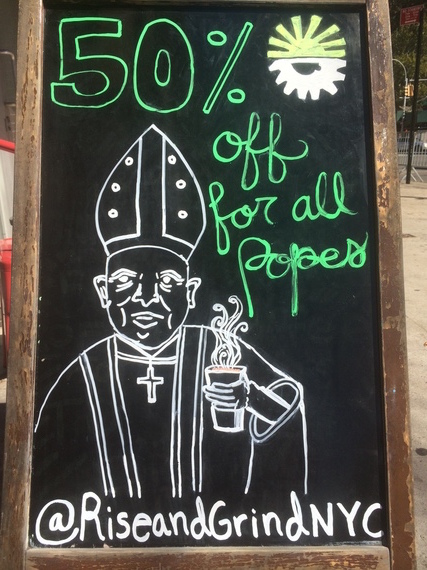 50%
off
for all
Popes
@RiseandGrindNYC